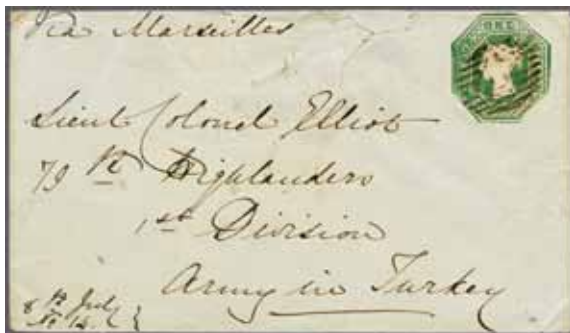 Via Marseilles
ONE
Lieut Colonel Elliot
79th Highlanders
1st Division
Army in Turkey
8th July
No 14